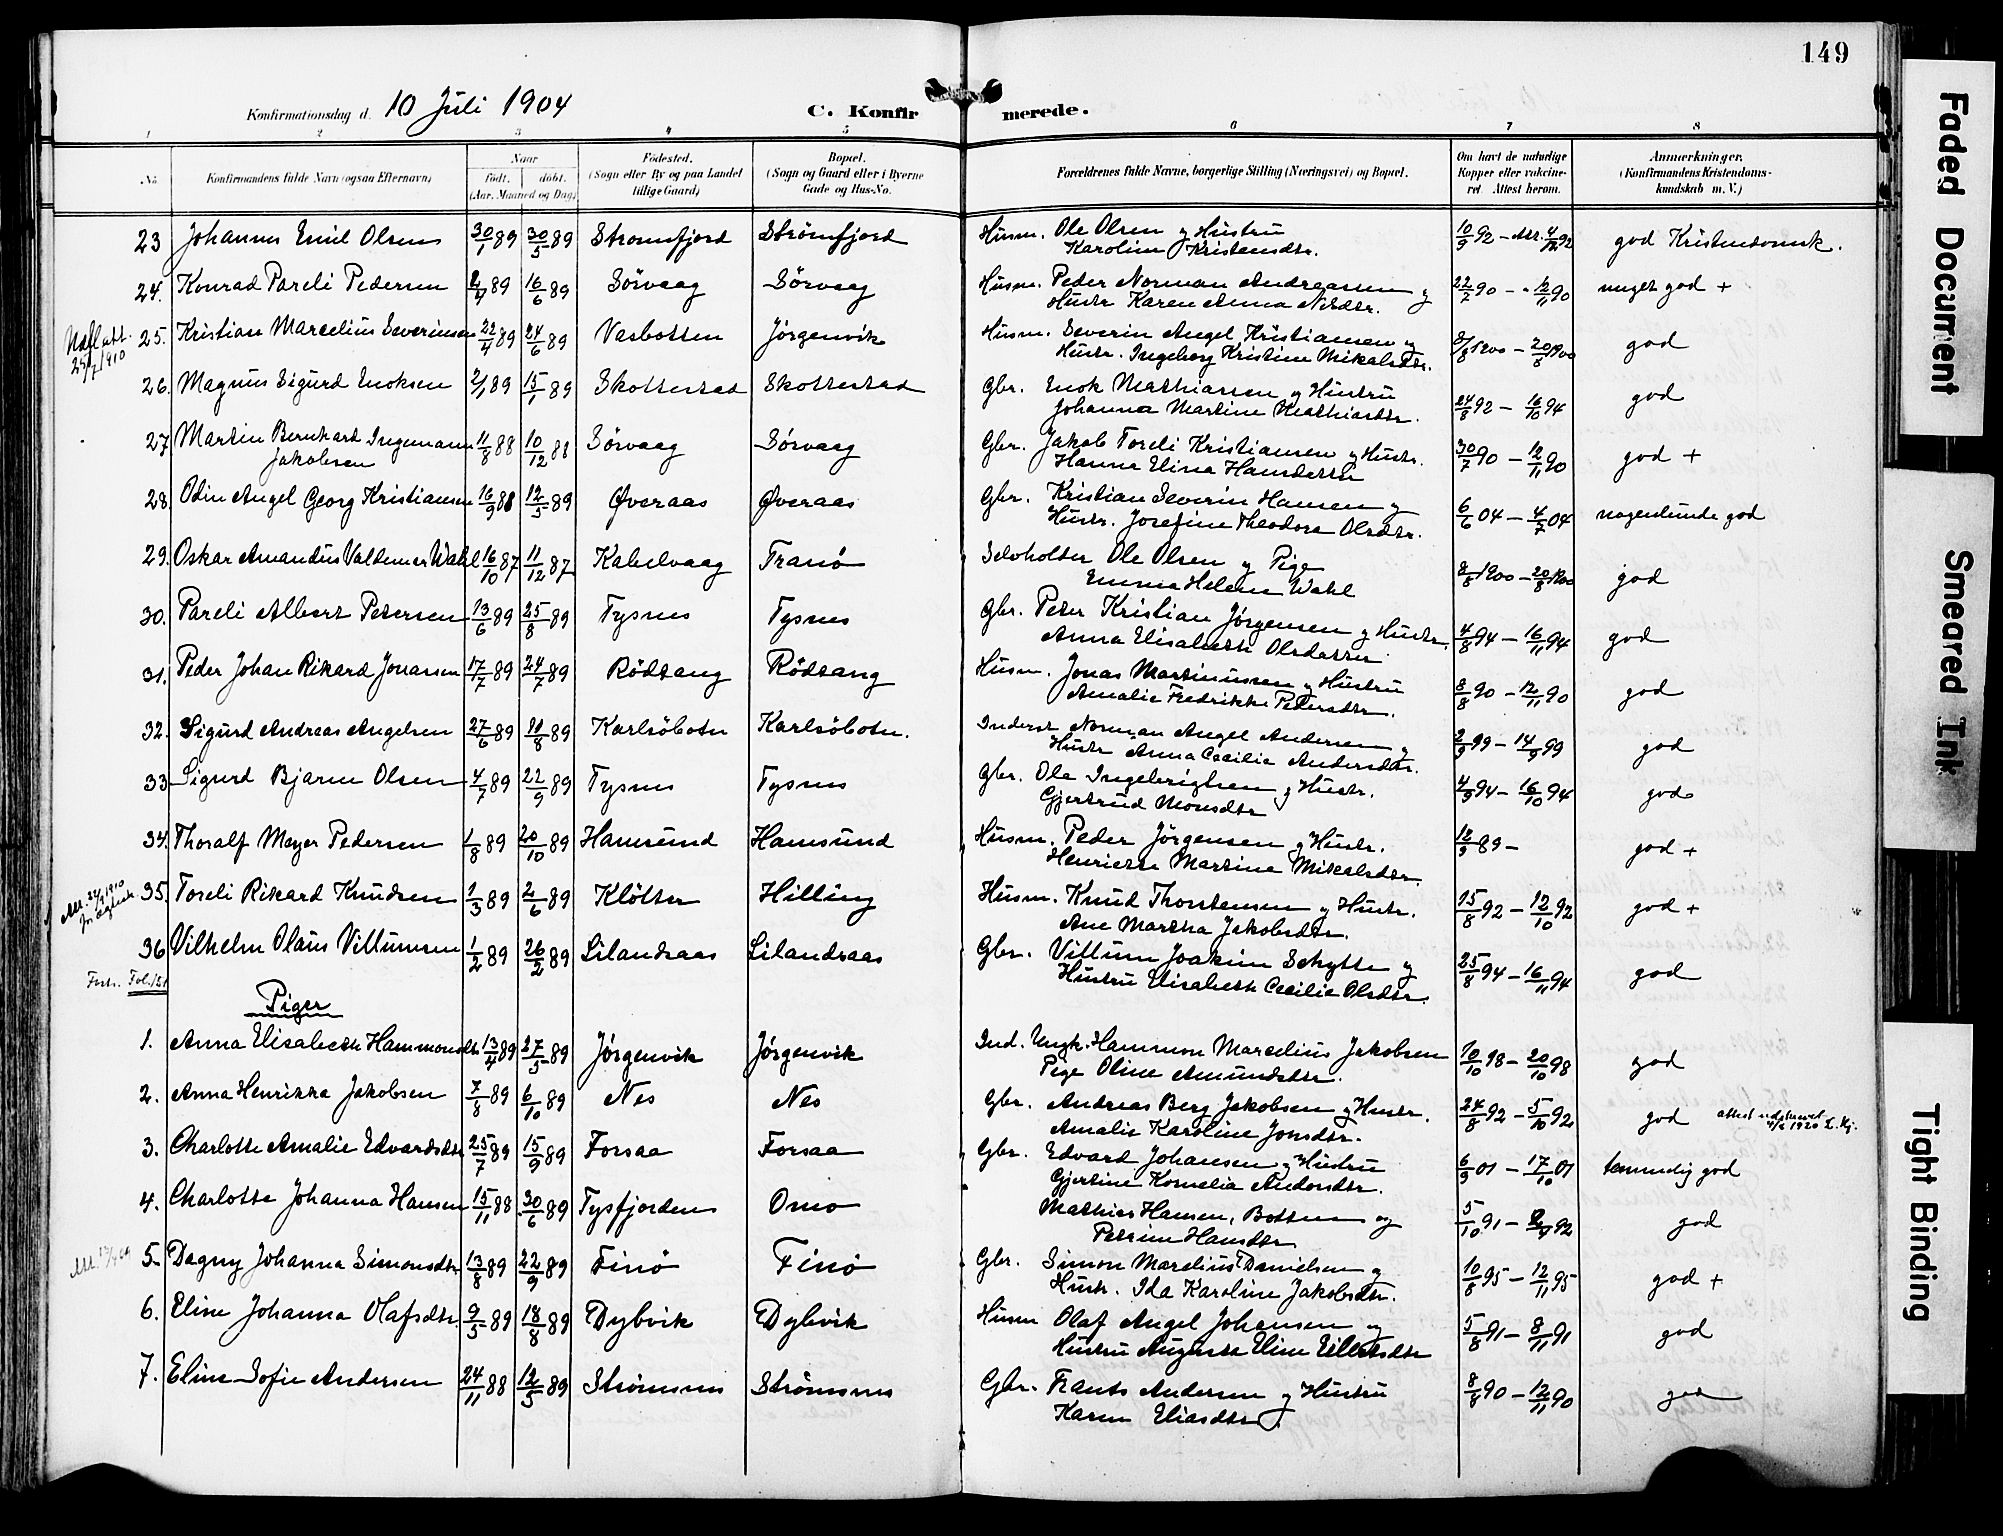 149
Konfirmationsdag d. 10 Juli 1904 C. Konfirmerede.
1 2 3 4 5 6 7 8
No Konfirmandens fulde Navn (ogsaa Efternavn) Naar født. døbt. (Aar, Maaned og Dag) Fødested. (Sogn eller By og paa Landet tillige Gaard) Bopæl. (Sogn og Gaard eller i Byerne Gade og Hus-No. Forældrenes fulde Navne, borgerlige Stilling (Næringsvei) og Bopæl. Om havt de naturlige Kopper eller vaccineret. Attest herom. Anmerkninger. (Konfirmandens Kristendomskundskab m. V.)
23 Johannes Emil Olsen 30/1 89 30/5 89 Strømfjord Strømfjord Husm. Ole Olsen og Hustru 10/9 92 – god Kristendomsk.
Karoline Kristensdtr.
24. Konrad Pareli Pedersen 2/4 89 16/6 89 Sörvaag Sörvaag Husm. Peder Norman Andreassen og 22/7 90 – 12/11 90 meget god +
Hustr Karen Anna Nilsdtr.
25. Kristian Marcelius Severinsen 22/4 89 24/6 89 Vasbotten Jörgenvik Husm. Severin Angel Kristiansen og 8/8 1900 – 20/8 1900 god
Hustr. Ingeborg Kristine Mikalsdtr.
25/7 1910
26. Magnus Sigurd Enoksen 2/1 89 15/1 89 Skotterstad Skotterstad Gbr. Enok Mathiassen og Hustru 24/8 92 – 16/10 94 god
Johanna Martine Mathiasdtr.
27 Martin Bernhard Ingemann 11/8 88 10/12 88 Sörvaag Sörvaag Gbr. Jakob Toreli Kristiansen og Hustr. 30/7 90 – 12/11 90 god +
Jakobsen Hanna Elina Hansdatter
28. Odin Angel Georg Kristiansen 16/9 88 12/5 89 Øveraas Øveraas Gbr. Kristian Severin Hansen og 6/6 04 – 4/7 04 nogenlunde god
Hustr. Josefine Theodora Olsdtr.
29. Oskar Amandus Valdemar Wahl 16/10 87 11/12 87 Kabelvaag Tranö Selvholder Ole Olsen og Pige 8/8 1900 – 20/8 1900 god
Emma Helene Wahl
30. Pareli Albert Petersen 13/6 89 25/8 89 Tysnes Tysnes Gbr. Peter Kristian Jørgensen og Hustr. 4/8 94 – 16/11 94 god
Anna Elisabeth Olsdatter
31. Peder Johan Rikard Jonassen 17/7 89 24/7 89 Rödtang Rödtang Husm. Jonas Martinussen og Hustru 8/8 90 – 12/11 90 god
Amalie Fredrikke Pedersdtr.
32. Sigurd Andreas Angelsen 27/6 89 11/8 89 Karlsöbotn Karlsöbotn. Inderst Norman Angel Andersen og 2/9 99 – 14/9 99 god
Hustr Anna Cecilie Andersdtr.
33 Sigurd Bjarne Olsen 4/7 89 22/9 89 Tysnes Tysnes Gbr. Ole Ingebrigtsen og Hustr. 4/9 94 – 16/10 94 god
Gjertrud Monsdtr
34. Thoralf Meyer Pedersen 1/8 89 20/10 89 Hamsund Hamsund Husm. Peder Jørgensen og Hustr. 12/9 89 – god +
Henriette Martine Mikalsdtr.
35. Toreli Rikard Knudsen 1/3 89 2/6 89 Klötter Hilling Husm. Knud Thorstensen og Hustr. 15/8 92 – 12/10 92 god +
Ane Martha Jakobsdtr.
36 Vilhelm Olaus Villumsen 1/2 89 26/2 89 Lilandsaas Lilandsaas Gbr. Villum Joakim Schytte og 25/8 94 – 16/11 94 god
Hustru Elisabeth Cecilie Olsdtr.
Forts. Fol. 151
Piger
1. Anna Elisabeth Hammonsdtr 13/4 89 27/5 89 Jørgenvik Jørgenvik Ind. Ungk. Hammon Marcelius Jakobsen 10/10 98 – 20/10 98 god
Pige Oline Amundsdtr.
2. Anna Henrikka Jakobsen 7/8 89 6/10 89 Nes Nes Gbr. Andreas Berg Jakobsen og Hustr. 24/8 92 – 5/10 92 god
Amalie Karoline Jonsdtr.
3. Charlotte Amalie Edvardsdtr 25/7 89 15/9 89 Forsaa Forsaa Gbr. Edvard Johansen og Hustru 6/9 01 – 17/10 01 temmelig god
Gjertine Kornelia Andorsdtr.
4. Charlotte Johanna Hansen 15/11 88 30/6 89 Tysfjorden Omo Mathias Hansen, Botten og 5/10 91 – god
Petrine Hansdtr
5. Dagny Johanna Simonsdtr. 13/8 89 22/9 89 Finö Finö Gbr. Simon Marelius Danielsen og 10/8 95 – 12/11 95 god +
Hustr. Ida Karoline Jakobsdtr.
6. Eline Johanna Olafsdtr 9/5 89 18/8 89 Dybvik Dybvik Husm Olaf Angel Johansen og 5/8 91 – 8/11 91 god
Hustru Augusta Eline Eilertsdtr
7. Eline Sofie Andersen 24/11 88 12/5 89 Strömsnes Strömsnes Gbr. Frants Andersen og Hustru 8/8 90 – 12/11 90 god
Karen Eliasdtr.
Faded Document
Smeared Ink
Tight Binding